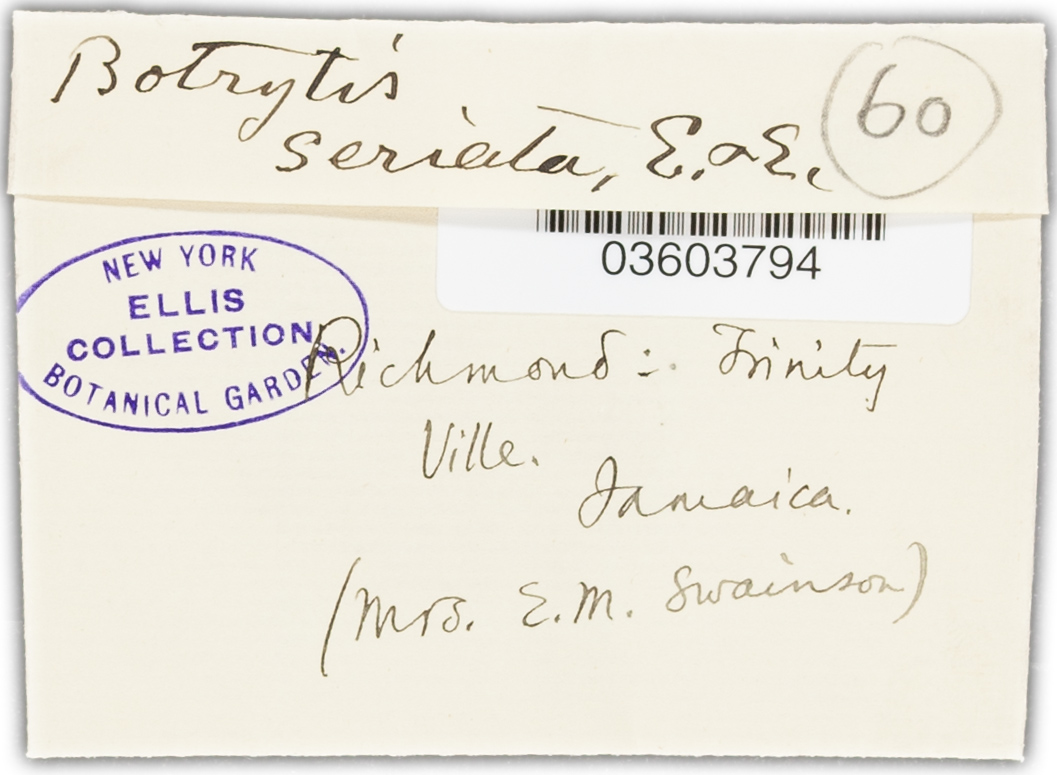 Botrytis
seriata, E. & E.
60
03603794
NEW YORK
ELLIS
COLLECTION
BOTANICAL GARDEN.
Richmond :. Trinity
Ville.
Jamaica.
(Mrs. E. M. Swainson)